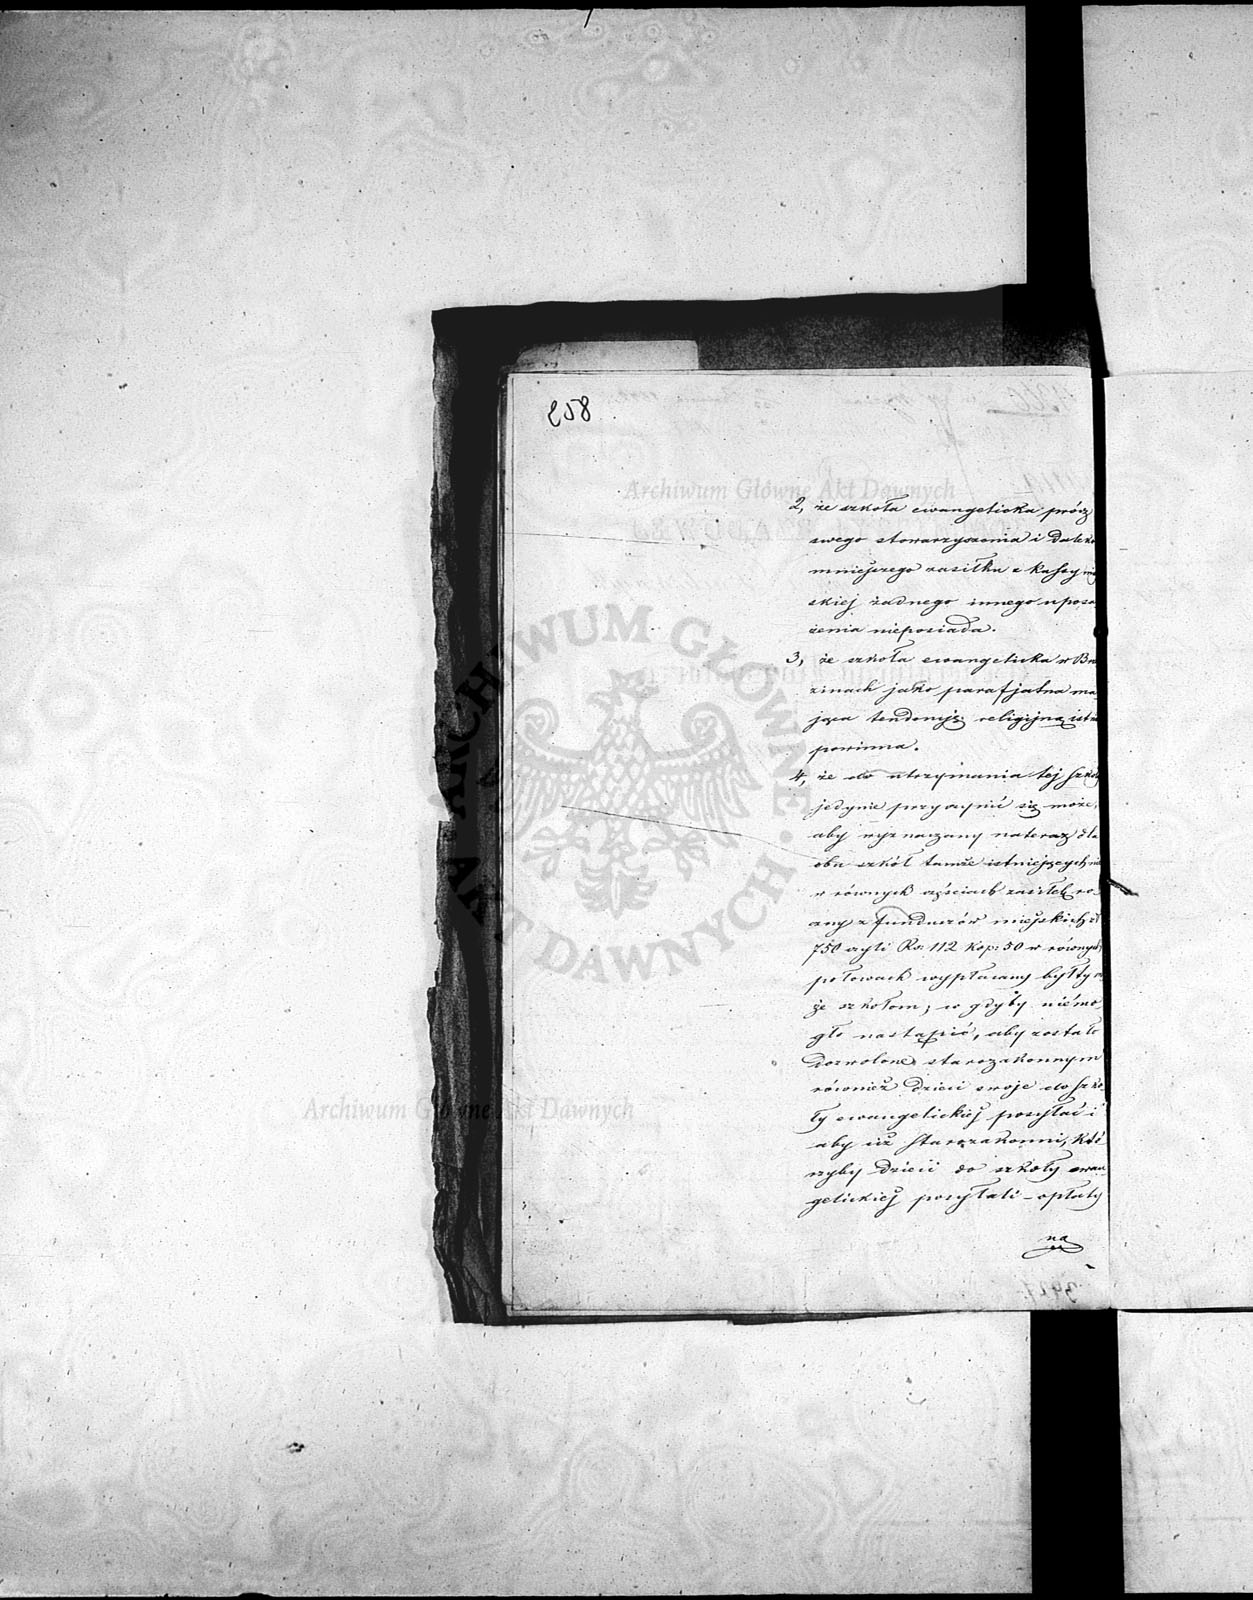 853
2, że szkoła ewangelicka prócz
swego stowarzyszenia i daleko
mniejszego zasiłku z kassy miej
skiej żadnego innego uposa
żenia nieposiada.
3, że szkoła ewangelicka w Brze
zinach jako parafjalna ma
jąca tendencję religijną istnieć
powinna.
4, że do utrzymania tej szkoły
jedynie przyczynić się może,
aby wyznaczany nateraz dla
obu szkół tamże istniejących nie
w równych częściach zasiłek ro
czny z funduszów miejskich
750 czyli Rs: 112 Kop: 50 w równych
połowach wypłacany był ty
że szkołom; a gdyby niemo
gło nastąpić, aby zostało
dozwolone starozakonnym
również dzieci swoje do szko
ły ewangelickiej posyłać i
aby ciż starozakonni, któ
rzyby dzieci do szkoły ewan
gelickiej posyłali – opłaty
na
Archiwum Główne Akt Dawnych
ARCHIWUM GŁÓWNE AKT DAWNYCH
Archiwum Główne Akt Dawnych